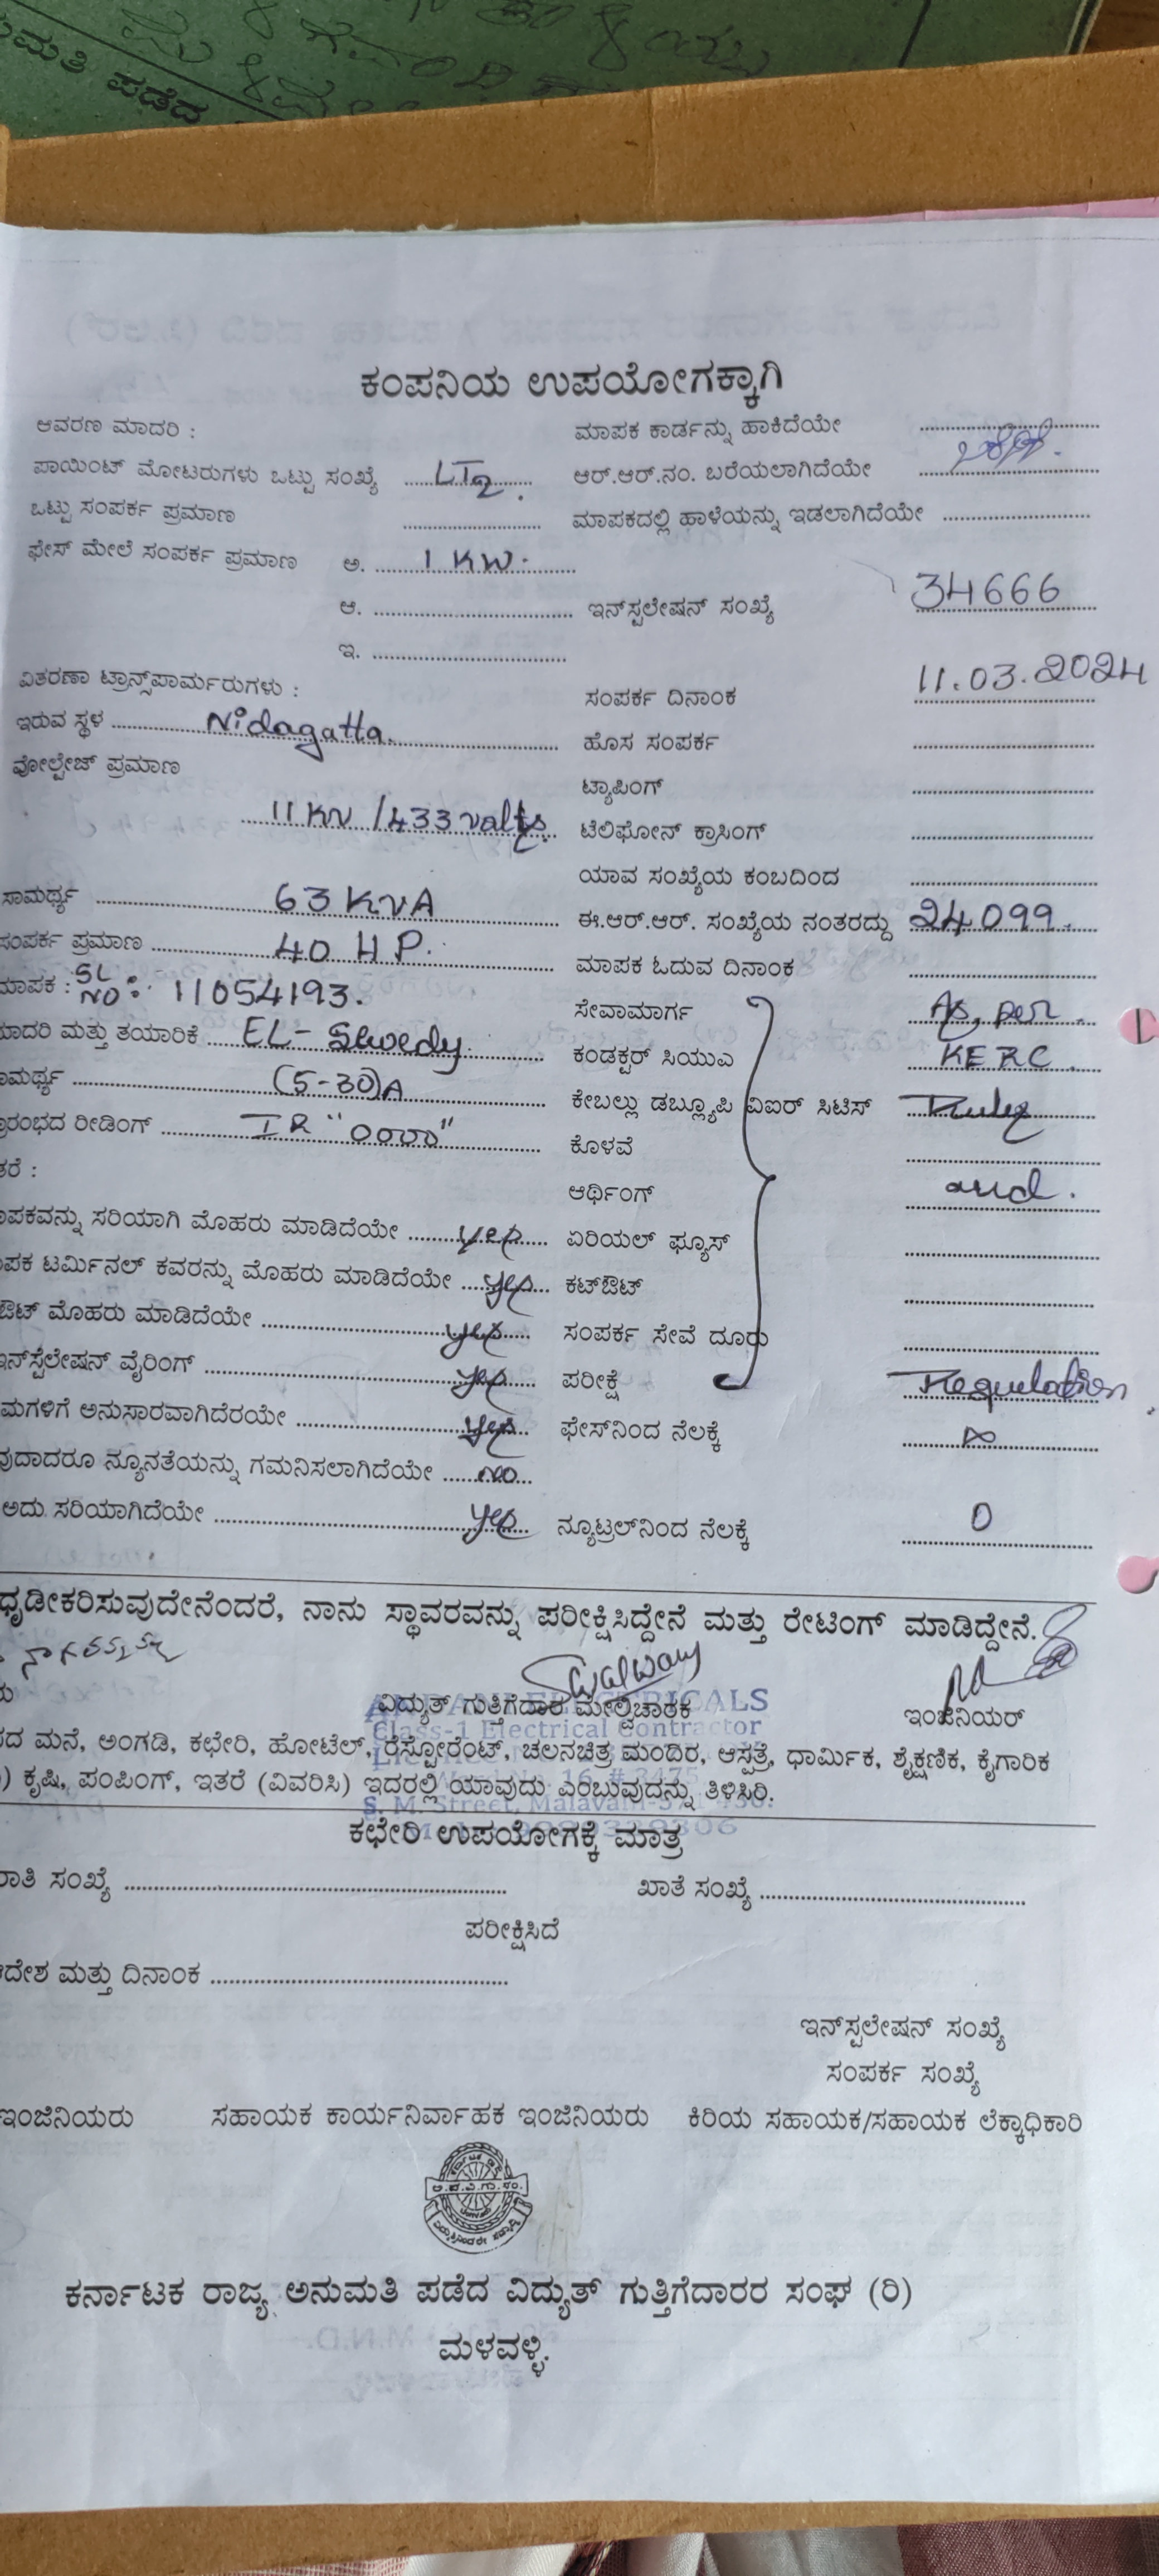 ಮತಿ ಪಡೆದ
ಕಂಪನಿಯ ಉಪಯೋಗಕ್ಕಾಗಿ
ಆವರಣ ಮಾದರಿ : ಮಾಪಕ ಕಾರ್ಡನ್ನು ಹಾಕಿದೆಯೇ
ಪಾಯಿಂಟ್ ಮೋಟರುಗಳು ಒಟ್ಟು ಸಂಖ್ಯೆ LT2. ಆರ್.ಆರ್.ನಂ. ಬರೆಯಲಾಗಿದೆಯೇ
ಒಟ್ಟು ಸಂಪರ್ಕ ಪ್ರಮಾಣ ಮಾಪಕದಲ್ಲಿ ಹಾಳೆಯನ್ನು ಇಡಲಾಗಿದೆಯೇ
ಫೇಸ್ ಮೇಲೆ ಸಂಪರ್ಕ ಪ್ರಮಾಣ ಅ. 1 KW.
ಆ. ಇನ್‌ಸ್ಟಲೇಷನ್ ಸಂಖ್ಯೆ 34666
ಇ.
ವಿತರಣಾ ಟ್ರಾನ್ಸ್‌ಫಾರ್ಮರುಗಳು : ಸಂಪರ್ಕ ದಿನಾಂಕ 11.03.2024
ಇರುವ ಸ್ಥಳ Nidagatta. ಹೊಸ ಸಂಪರ್ಕ
ವೋಲ್ಟೇಜ್ ಪ್ರಮಾಣ ಟ್ಯಾಪಿಂಗ್
11 KV /433 valts. ಟೆಲಿಫೋನ್ ಕ್ರಾಸಿಂಗ್
ಯಾವ ಸಂಖ್ಯೆಯ ಕಂಬದಿಂದ
ಸಾಮರ್ಥ್ಯ 63 KVA ಈ.ಆರ್.ಆರ್. ಸಂಖ್ಯೆಯ ನಂತರದ್ದು 24099.
ಸಂಪರ್ಕ ಪ್ರಮಾಣ 40 HP. ಮಾಪಕ ಓದುವ ದಿನಾಂಕ
ಮಾಪಕ : SL NO: 11054193. ಸೇವಾಮಾರ್ಗ As per.
ಮಾದರಿ ಮತ್ತು ತಯಾರಿಕೆ EL-Sewedy. ಕಂಡಕ್ಟರ್ ಸಿಯುಎ KERC.
ಾಮರ್ಥ್ಯ (5-30)A ಕೇಬಲ್ಲು ಡಬ್ಲ್ಯೂಪಿ ವಿಐರ್ ಸಿಟಿಸ್ Rules
ಾರಂಭದ ರೀಡಿಂಗ್ IR "0000" ಕೊಳವೆ
ತರೆ : ಆರ್ಥಿಂಗ್ and.
ಾಪಕವನ್ನು ಸರಿಯಾಗಿ ಮೊಹರು ಮಾಡಿದೆಯೇ yes ಏರಿಯಲ್ ಫ್ಯೂಸ್
ಪಕ ಟರ್ಮಿನಲ್ ಕವರನ್ನು ಮೊಹರು ಮಾಡಿದೆಯೇ yes ಕಟ್‌ಔಟ್
ಔಟ್ ಮೊಹರು ಮಾಡಿದೆಯೇ yes ಸಂಪರ್ಕ ಸೇವೆ ದೂರು
ಇನ್‌ಸ್ಟೆಲೇಷನ್ ವೈರಿಂಗ್ yes ಪರೀಕ್ಷೆ Regulation
ಮಗಳಿಗೆ ಅನುಸಾರವಾಗಿದೆರಯೇ yes ಫೇಸ್‌ನಿಂದ ನೆಲಕ್ಕೆ ∞
ವುದಾದರೂ ನ್ಯೂನತೆಯನ್ನು ಗಮನಿಸಲಾಗಿದೆಯೇ NO
ಅದು ಸರಿಯಾಗಿದೆಯೇ yes ನ್ಯೂಟ್ರಲ್‌ನಿಂದ ನೆಲಕ್ಕೆ 0
ಧೃಡೀಕರಿಸುವುದೇನೆಂದರೆ, ನಾನು ಸ್ಥಾವರವನ್ನು ಪರೀಕ್ಷಿಸಿದ್ದೇನೆ ಮತ್ತು ರೇಟಿಂಗ್ ಮಾಡಿದ್ದೇನೆ.
ವಿದ್ಯುತ್ ಗುತ್ತಿಗೆದಾರ ಮೇಲ್ವಿಚಾರಕ ಇಂಜಿನಿಯರ್
Class-1 Electrical Contractor
ದ ಮನೆ, ಅಂಗಡಿ, ಕಛೇರಿ, ಹೋಟೆಲ್, ರೆಸ್ಟೋರೆಂಟ್, ಚಲನಚಿತ್ರ ಮಂದಿರ, ಆಸ್ಪತ್ರೆ, ಧಾರ್ಮಿಕ, ಶೈಕ್ಷಣಿಕ, ಕೈಗಾರಿಕ
) ಕೃಷಿ, ಪಂಪಿಂಗ್, ಇತರೆ (ವಿವರಿಸಿ) ಇದರಲ್ಲಿ ಯಾವುದು ಎಂಬುವುದನ್ನು ತಿಳಿಸಿರಿ.
ಕಛೇರಿ ಉಪಯೋಗಕ್ಕೆ ಮಾತ್ರ
ಾತಿ ಸಂಖ್ಯೆ ಖಾತೆ ಸಂಖ್ಯೆ
ಪರೀಕ್ಷಿಸಿದೆ
ದೇಶ ಮತ್ತು ದಿನಾಂಕ
ಇನ್‌ಸ್ಟಲೇಷನ್ ಸಂಖ್ಯೆ
ಸಂಪರ್ಕ ಸಂಖ್ಯೆ
ಇಂಜಿನಿಯರು ಸಹಾಯಕ ಕಾರ್ಯನಿರ್ವಾಹಕ ಇಂಜಿನಿಯರು ಕಿರಿಯ ಸಹಾಯಕ/ಸಹಾಯಕ ಲೆಕ್ಕಾಧಿಕಾರಿ
ಕರ್ನಾಟಕ ರಾಜ್ಯ ಅನುಮತಿ ಪಡೆದ ವಿದ್ಯುತ್ ಗುತ್ತಿಗೆದಾರರ ಸಂಘ (ರಿ)
ಮಳವಳ್ಳಿ.